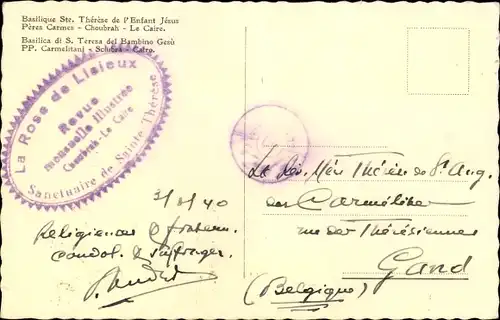 Basilique Ste. Thérèse de l'Enfant Jésus
Pères Carmes - Choubrah - Le Caire.
Basilica di S. Teresa del Bambino Gesù
PP. Carmelitani - Sciubra - Cairo.
La Rose de Lisieux
Revue
mensuelle illustrée
Choubrah - Le Caire
Sanctuaire de Sainte Thérèse
3/8/40
Religieuses & fratern.
condol. & suffrages.
La Rév. Mère Thérèse de St Aug.
des Carmélites
rue des Thérésiennes
Gand
(Belgique)